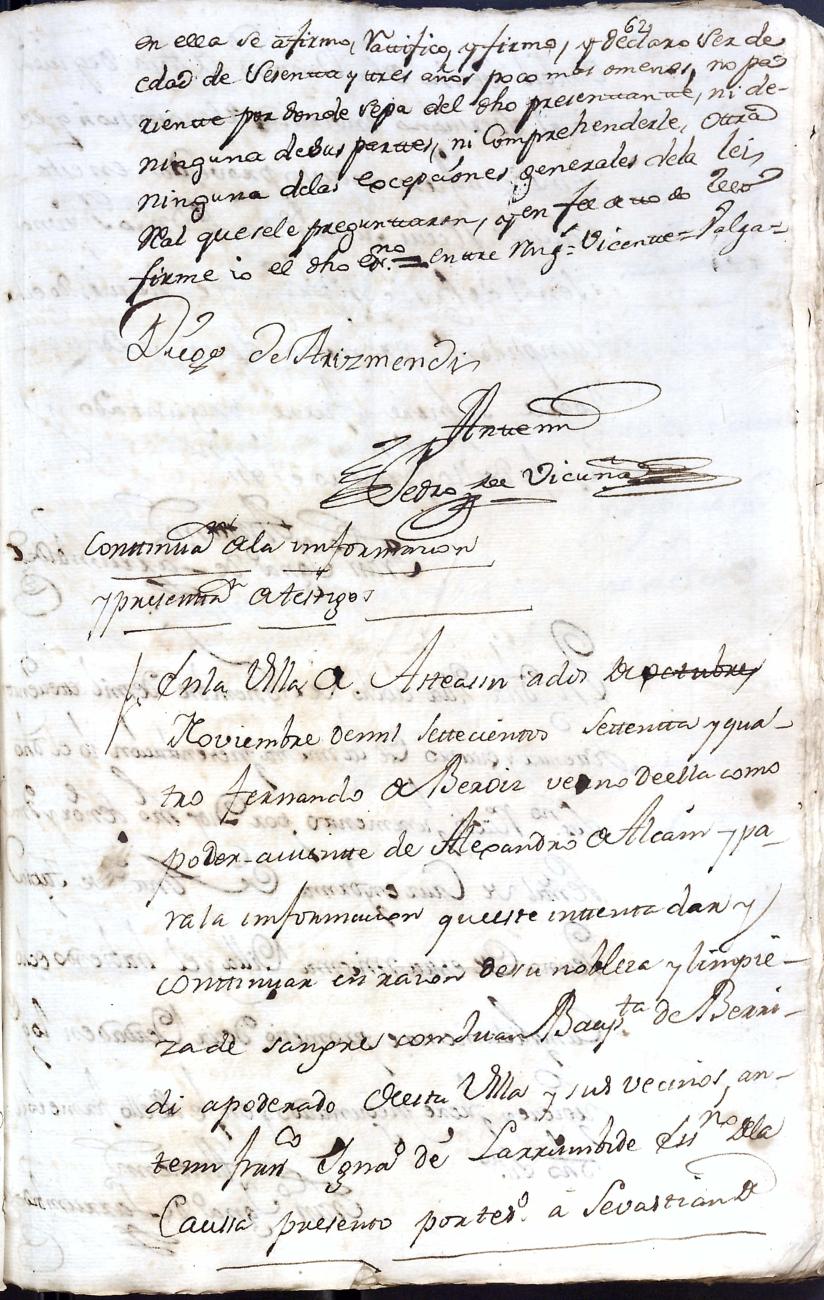 62
en ella se afirmo, Rattifico, y firmo, y declaro ser de
edad de Sesentta y tres años poco mas omenos, no pa
riente por donde sepa del dho presenttantte, ni de-
ninguna desus parttes, ni Comprehenderle, Ottra
ninguna delas excepciones generales dela lei
Real quesele pregunttaron, y en fee de tto do
firme io el dho esno = enttre Rng.s = Vicentte = Valga =
Diego de Arizmendi
Antemi
Pedro de Vicuña
Conttinuan. de la imformacion
y presenttan. de testigos
En la Villa de Asteasu a dos de octubre
Noviembre demil settecientos settentta y qua-
tro fernando de Beroiz vecino de ella como
poder-aviente de Alexandro de Alcain y pa-
ra la imformacion que este inttenta dar y
conttinuar en razon de su nobleza y limpie-
za de sangre, con Juan Baup.ta de Berri-
di apoderado de esta Villa y sus vecinos, an-
temi fran.co Igna.o de Larrumbide Ess.no de la
Caussa presento por tes.o a Sevastian de